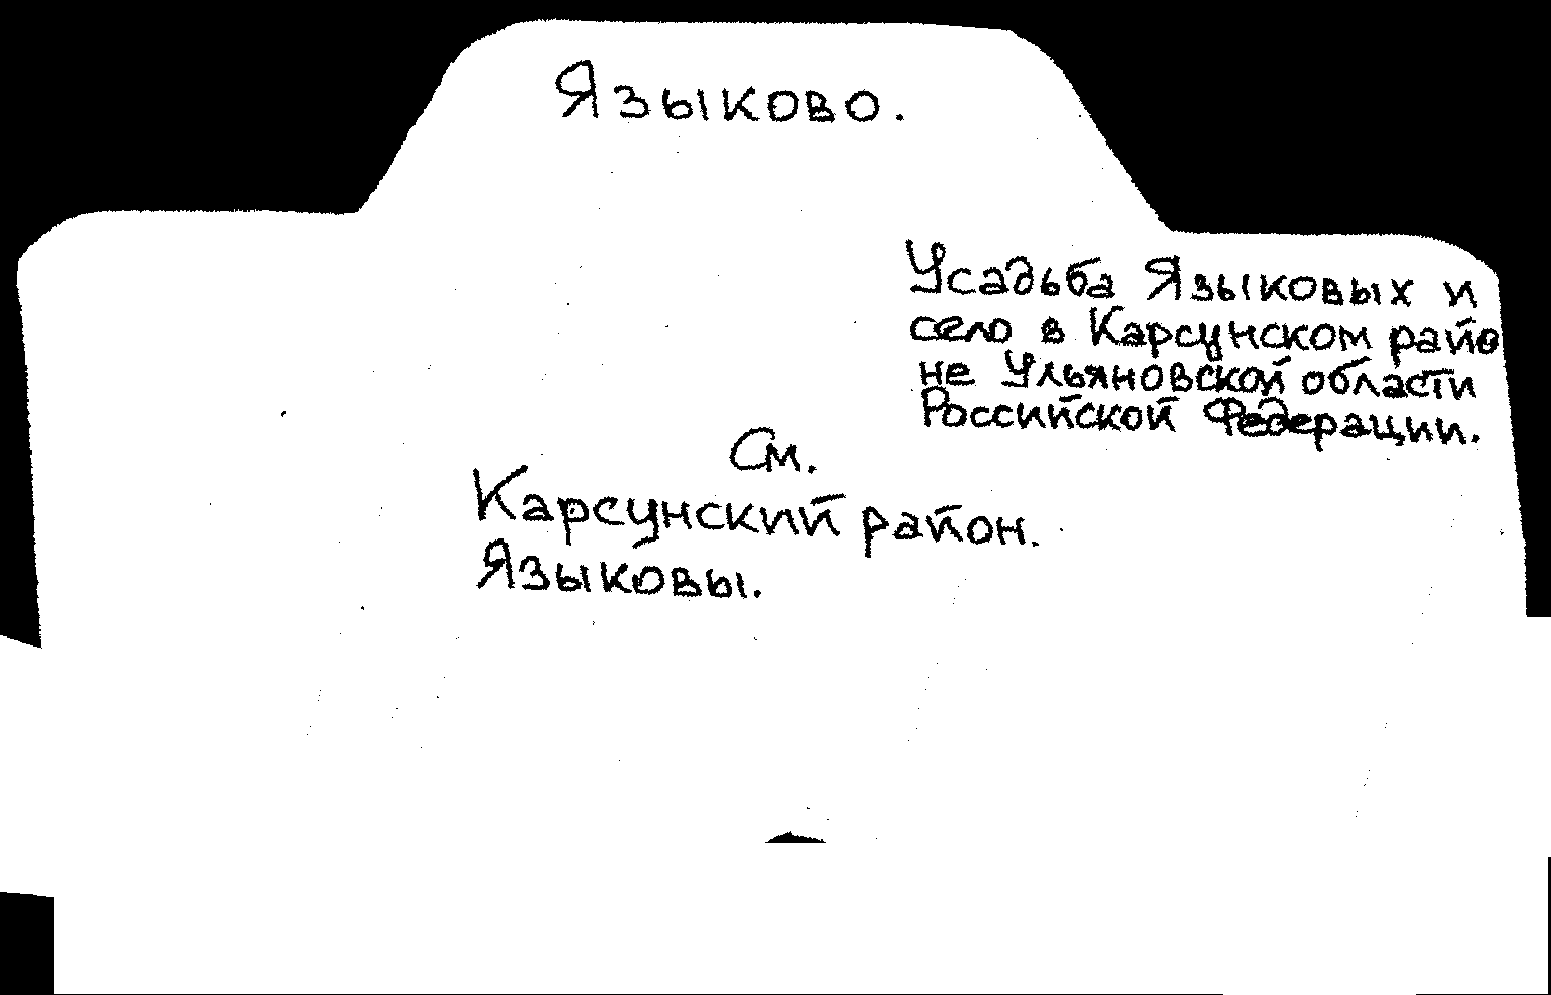 Языково.
Усадьба Языковых и
село в Карсунском райо
не Ульяновской области
Российской Федерации.
См.
Карсунский район.
Языковы.